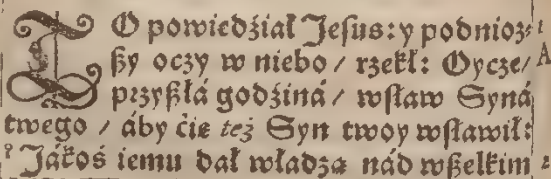 TO powiedźiał Jeſus: y podnioz⸗ 1
ßy oczy w niebo / rzekł: Oycze / A
przyßłá godźiná / wſław Syná
twego / áby ćię też Syn twoy wſławił:
² Jákoś iemu dał władzą nád wßelkim 2